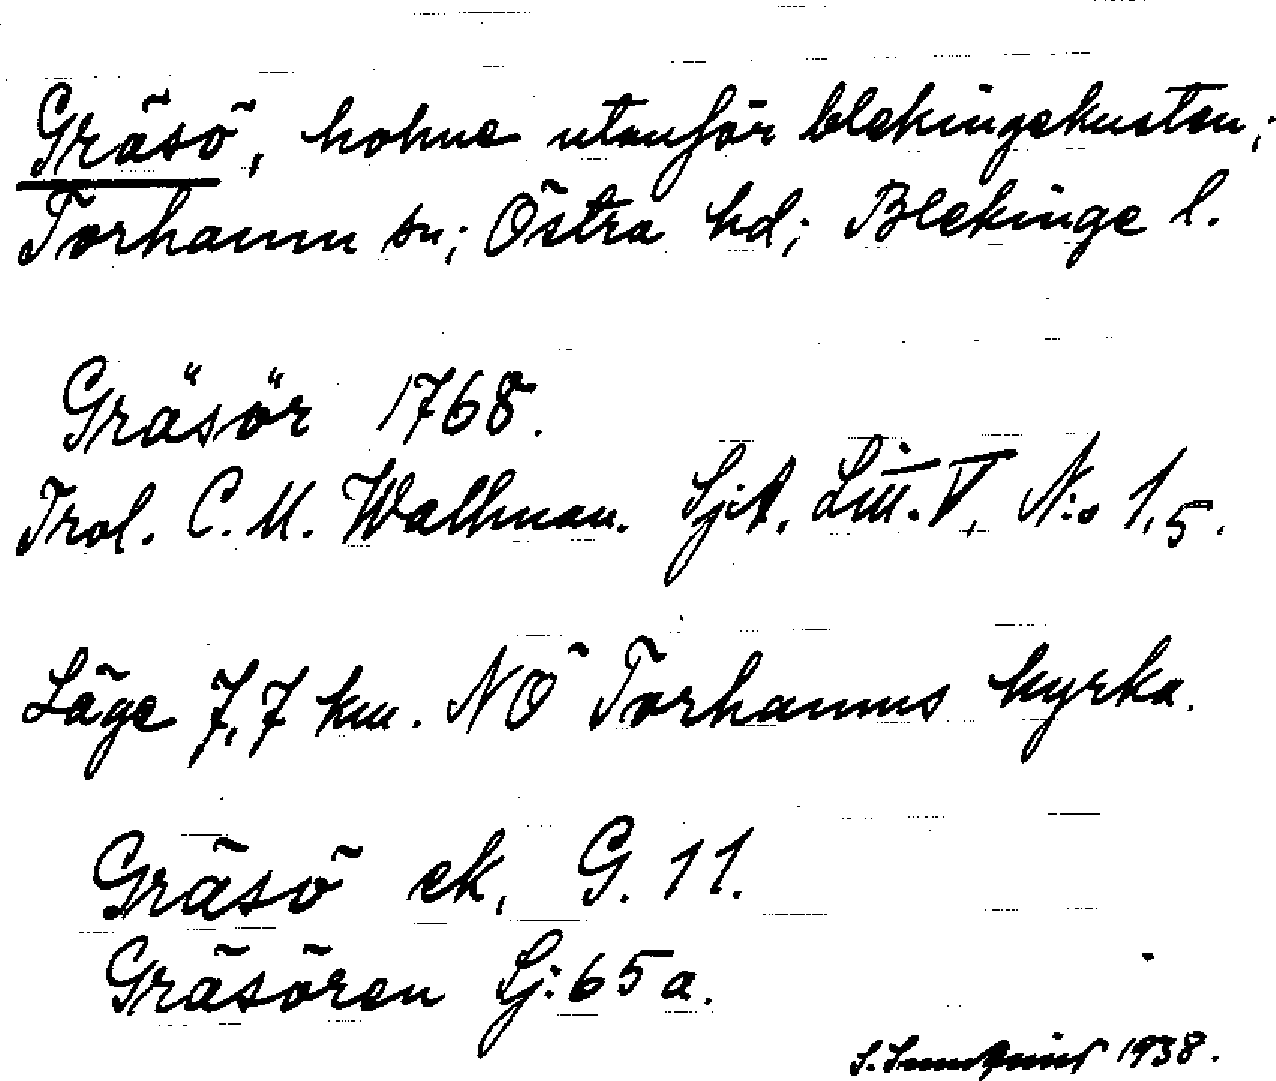 Gräsö, holme utanför blekingekusten;
Torhamn sn; Östra hd; Blekinge l.
Gräsör 1768.
Trol. C. M. Wallman. SjA. Litt. V, N:o 1,5.
Läge 7,7 km. NÖ Torhamns kyrka.
Gräsö ek, G. 11.
Gräsören Sj: 65 a.
S. 1938.